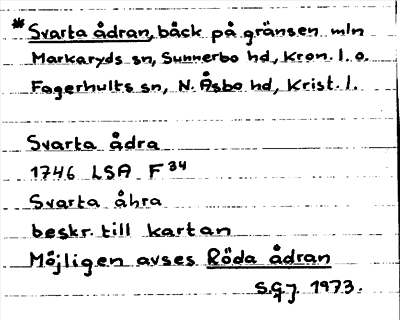 * Svarta ådran, bäck på gränsen mln
Markaryds sn, Sunnerbo hd, Kron. l. o.
Fagerhults sn, N. Åsbo hd, Krist. l.
Svarta ådra
1746 LSA F 34
Svarta åhra
beskr. till kartan
Möjligen avses Röda ådran
S.G.J. 1973.